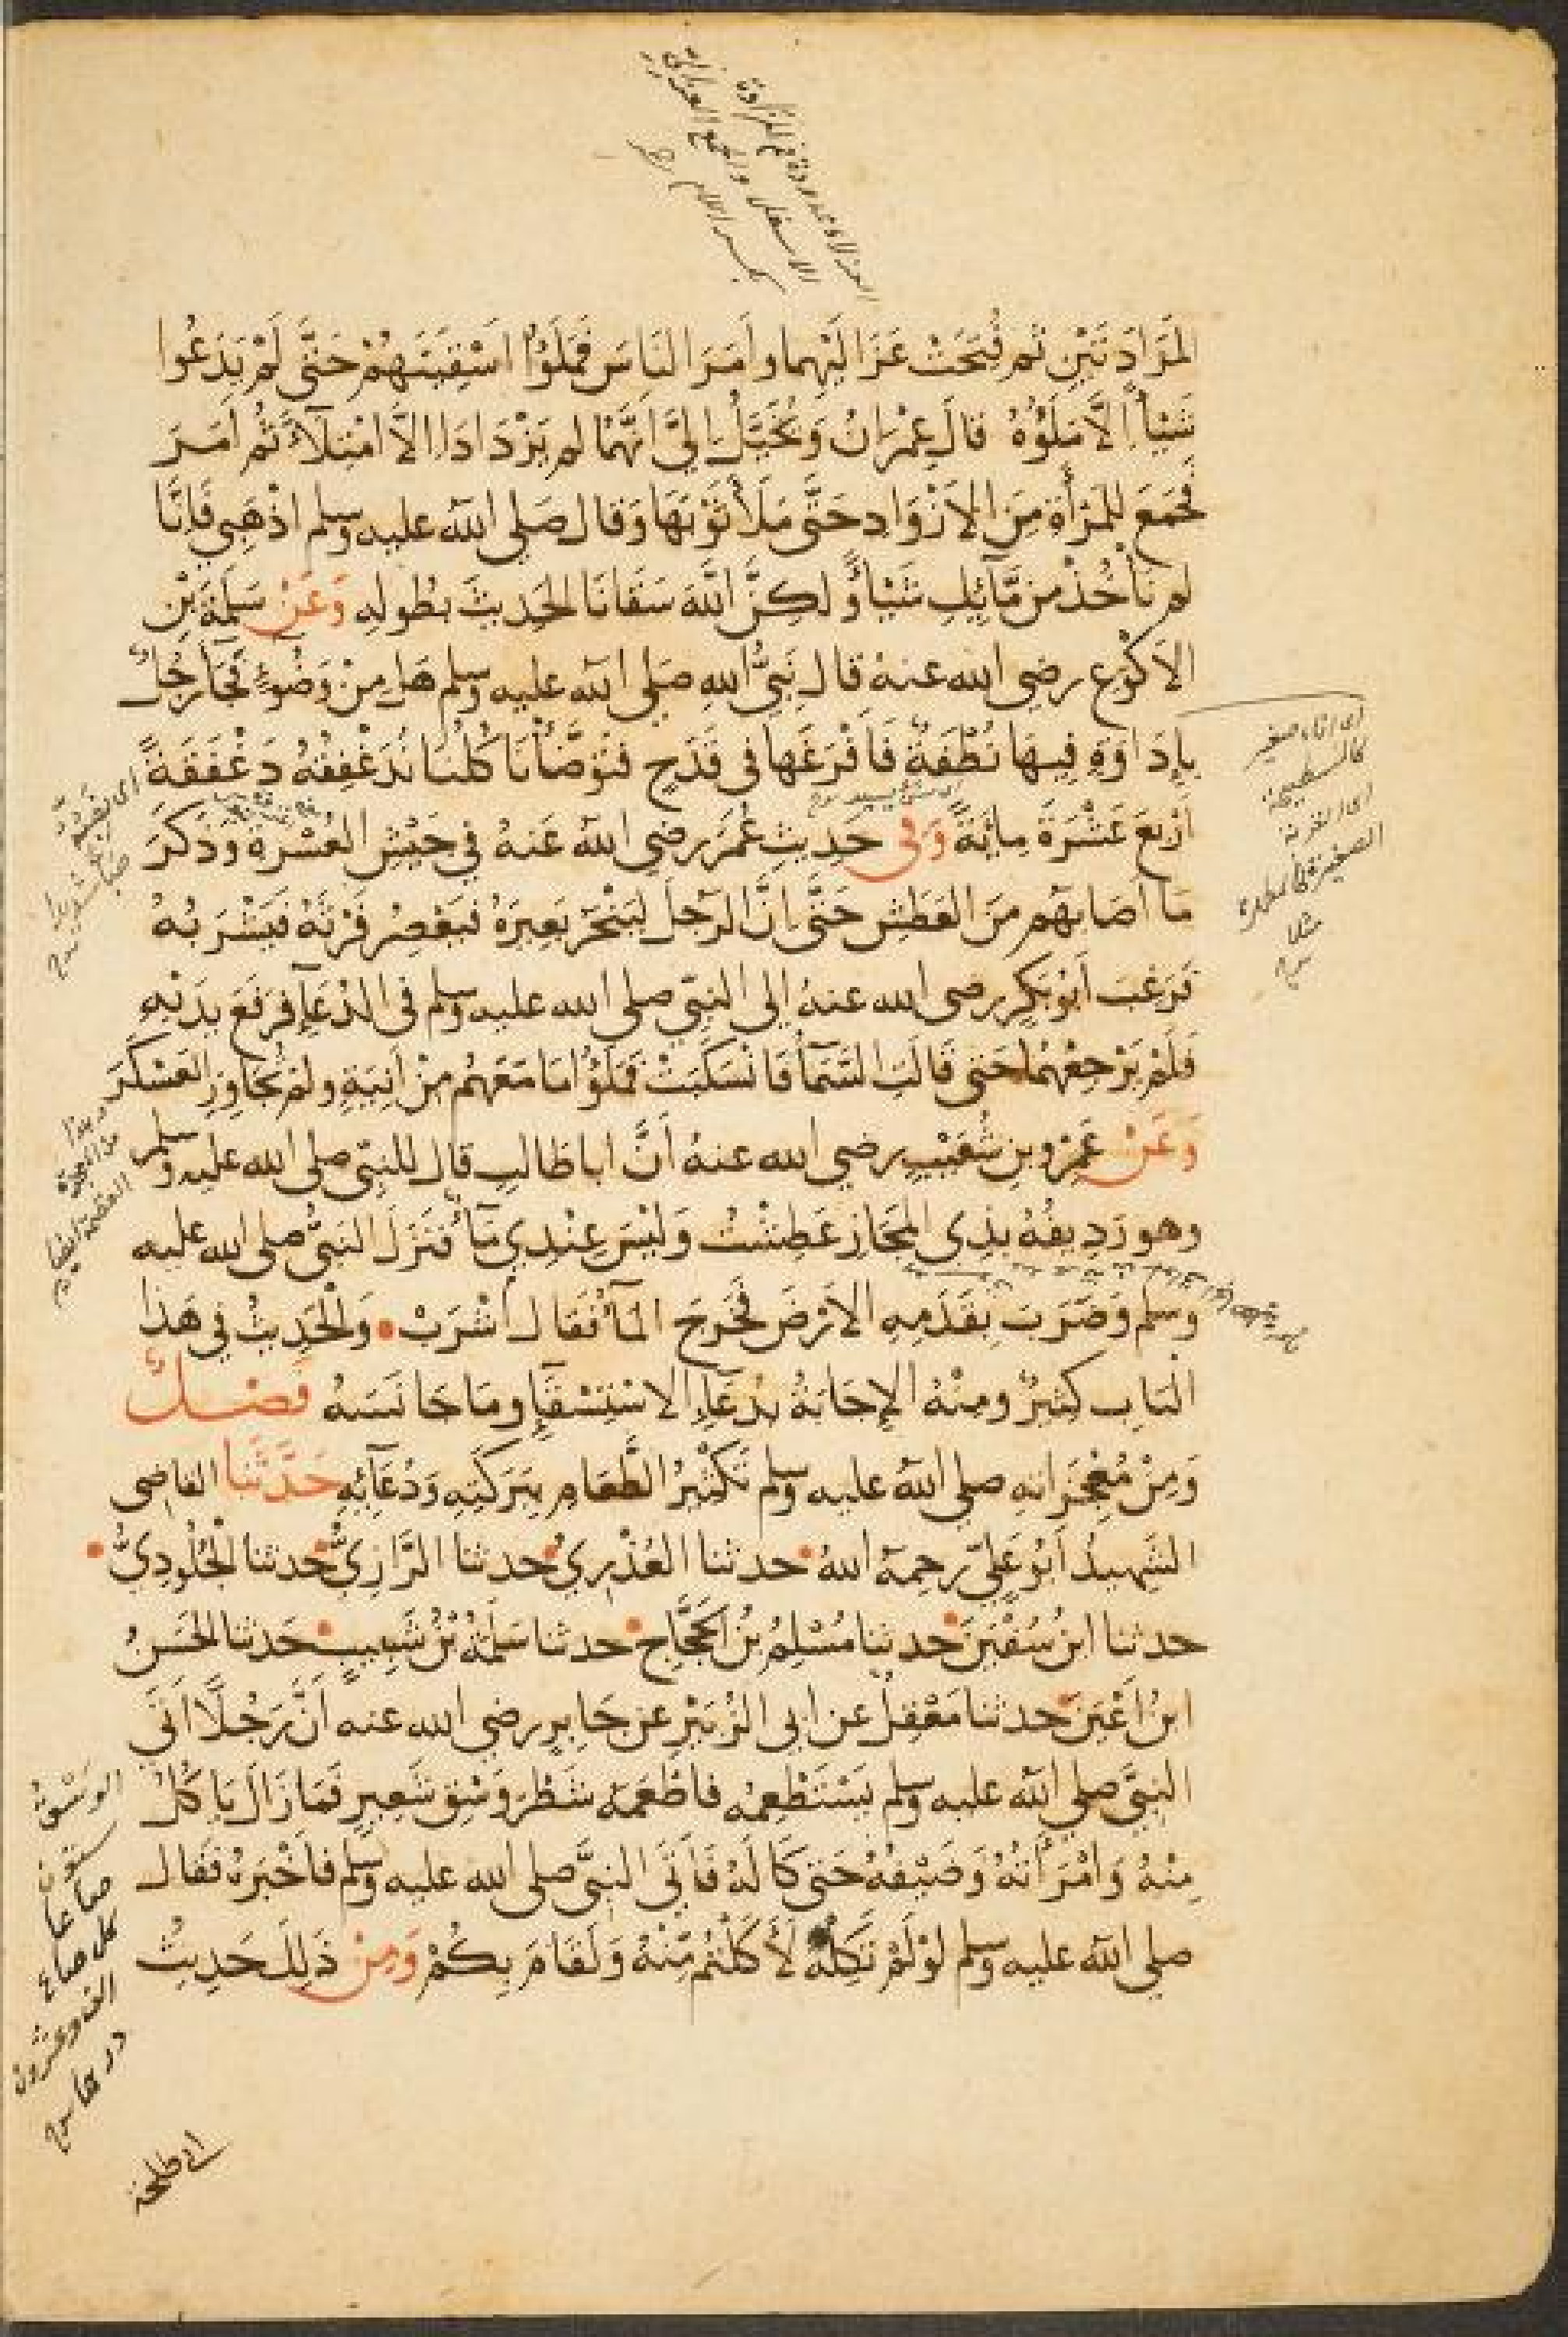 المَزَادَتَيْنِ ثم فُتِحَتْ عَزَالَيْهِما وأَمَرَ النَاسَ فَمَلَؤُا اَسْقِيَتَهُمْ حَتَّى لَمْ يَدَعُوا
شَيْأً اِلَّا مَلَؤُهُ قالَ عِمْرَانُ وَيُخَيَّلُ اِلَيَّ اَنَّهُمَا لم يَزْدَادَا اِلَّا امْتِلَآءً ثُم اَمَرَ
فَجُمِعَ لِلْمَرْأَةِ مِنَ الاَزْوَادِ حَتَّى مَلَأَ ثَوْبَهَا وَقال صَلى الله عليه وسلم اذْهَبِي فَاِنَّا
لم نَأْخُذْ مِن مَّائِكِ شَيْأً وَّلكِنَّ اللَّهَ سَقَانَا الحَدِيثَ بطُولِهِ وَعَنْ سَلَمَةَ بْنِ
الاَكْوَعِ رضى الله عنهُ قال نَبِيُّ اللهِ صَلى الله عليه وسلم هَل مِنْ وَضُوءٍ فَجَآءَ رَجُلٌ
بإِدَاوَةٍ فِيهَا نُطْفَةٌ فَاَفْرَغَها فى قَدَحٍ فَتَوَضَّأْنَا كُلُّنَا نُدَغْفِقُهُ دَغْفَقَةً
اَرْبَعَ عَشْرَةَ مِائَةً وَفى حَدِيثِ عُمَرَ رضى الله عَنهُ في جَيْشِ العُسْرةِ وَذَكَرَ
مَا اَصَابَهُم مِنَ العَطَشِ حَتَّى اِنَّ الرَّجُلَ لَيَنْحَرُ بَعِيرَهُ فَيَعْصِرُ فَرْثَهُ فَيَشْرَبُهُ
فَرَغِبَ اَبُو بَكرٍ رضى الله عنهُ اِلى النبيّ صلى الله عليه وسلم فى الدُّعَآءِ فَرَفَعَ يَدَيْهِ
فَلَمْ يَرْجِعْهُمَا حَتى قَالَتِ السَّمَآءُ فَانْسَكَبَتْ فَمَلَؤُا مَا مَعَهُم مِنْ اَنِيَةٍ ولَمْ تُجَاوِزِ العَسْكَرَ
وَعَنْ عَمْرِو بن شُعَيْبٍ رضي الله عنهُ أَنَّ ابا طَالِبٍ قال للنبيّ صلى الله عليه وسلم
وهو رَدِيفُهُ بذِى المَجَازِ عَطِشْتُ وَلَيْسَ عِنْدِي مَآءٌ فَنَزَلَ النبيُّ صلى الله عليه
وسلم وَضَرَبَ بِقَدَمِهِ الاَرْضَ فَخَرَجَ المَآءُ فَقَال اشْرَبْ وَالْحَدِيثُ في هَذا
الْبَابِ كثيرٌ ومِنْهُ الاِجَابَةُ بِدُعَآءِ الاسْتِسْقَآءِ وما جَانَسَهُ فَصْــلٌ
وَمِنْ مُعْجِزَاتِهِ صلى الله عليه وسلم تَكثيرُ الطَّعَامِ بِبَرَكَتِهِ وَدُعَآئِهِ حَدَّثَنَا القاضِى
الشَهِيدُ اَبُو عَلِيّ رحِمهُ اللهُ حدثنا العُذْرِي حدثنا الرَّازِيُّ حدثنا الْجُلُودِيُّ
حدثنا ابنُ سُفْيَن حدثنا مُسْلِمُ بْنُ الحَجَّاجِ حدثنا سَلَمَةُ بْنُ شَبِيبٍ حَدثنا الحَسَنُ
ابنُ اَعْيَنَ حدثنا مَعْقِلٌ عن ابي الزُبَيْرِ عن جَابِرٍ رضي الله عنه اَنَّ رَجُلًا اَتَى
النبيَّ صلى الله عليه وسلم يَسْتَطْعِمُه فاَطْعَمَهُ شَطْرَ وَسْقِ شَعِيرٍ فَمَا زَالَ يَاكُلُ
مِنْهُ وَامْرَأَتُهُ وَضَيْفُهُ حَتى كَالَهُ فَاَتَى النبيَّ صلى الله عليه وسلم فاَخْبَرَهُ فقال
صلى الله عليه وسلم لَوْ لَمْ تَكِلْهُ لَأَكَلْتُم مِّنْهُ وَلَقَامَ بِكُمْ وَمِنْ ذَلِكَ حَدِيثُ
اى اناء صغير
كالسطيحة
الصغيرة كالمطهرة
مثلا
اى نصبه
صبا شديدا
الوَسْقُ
ستون
صاعا
كل صاع
الف وعشرون
درهما
ابى طلحة